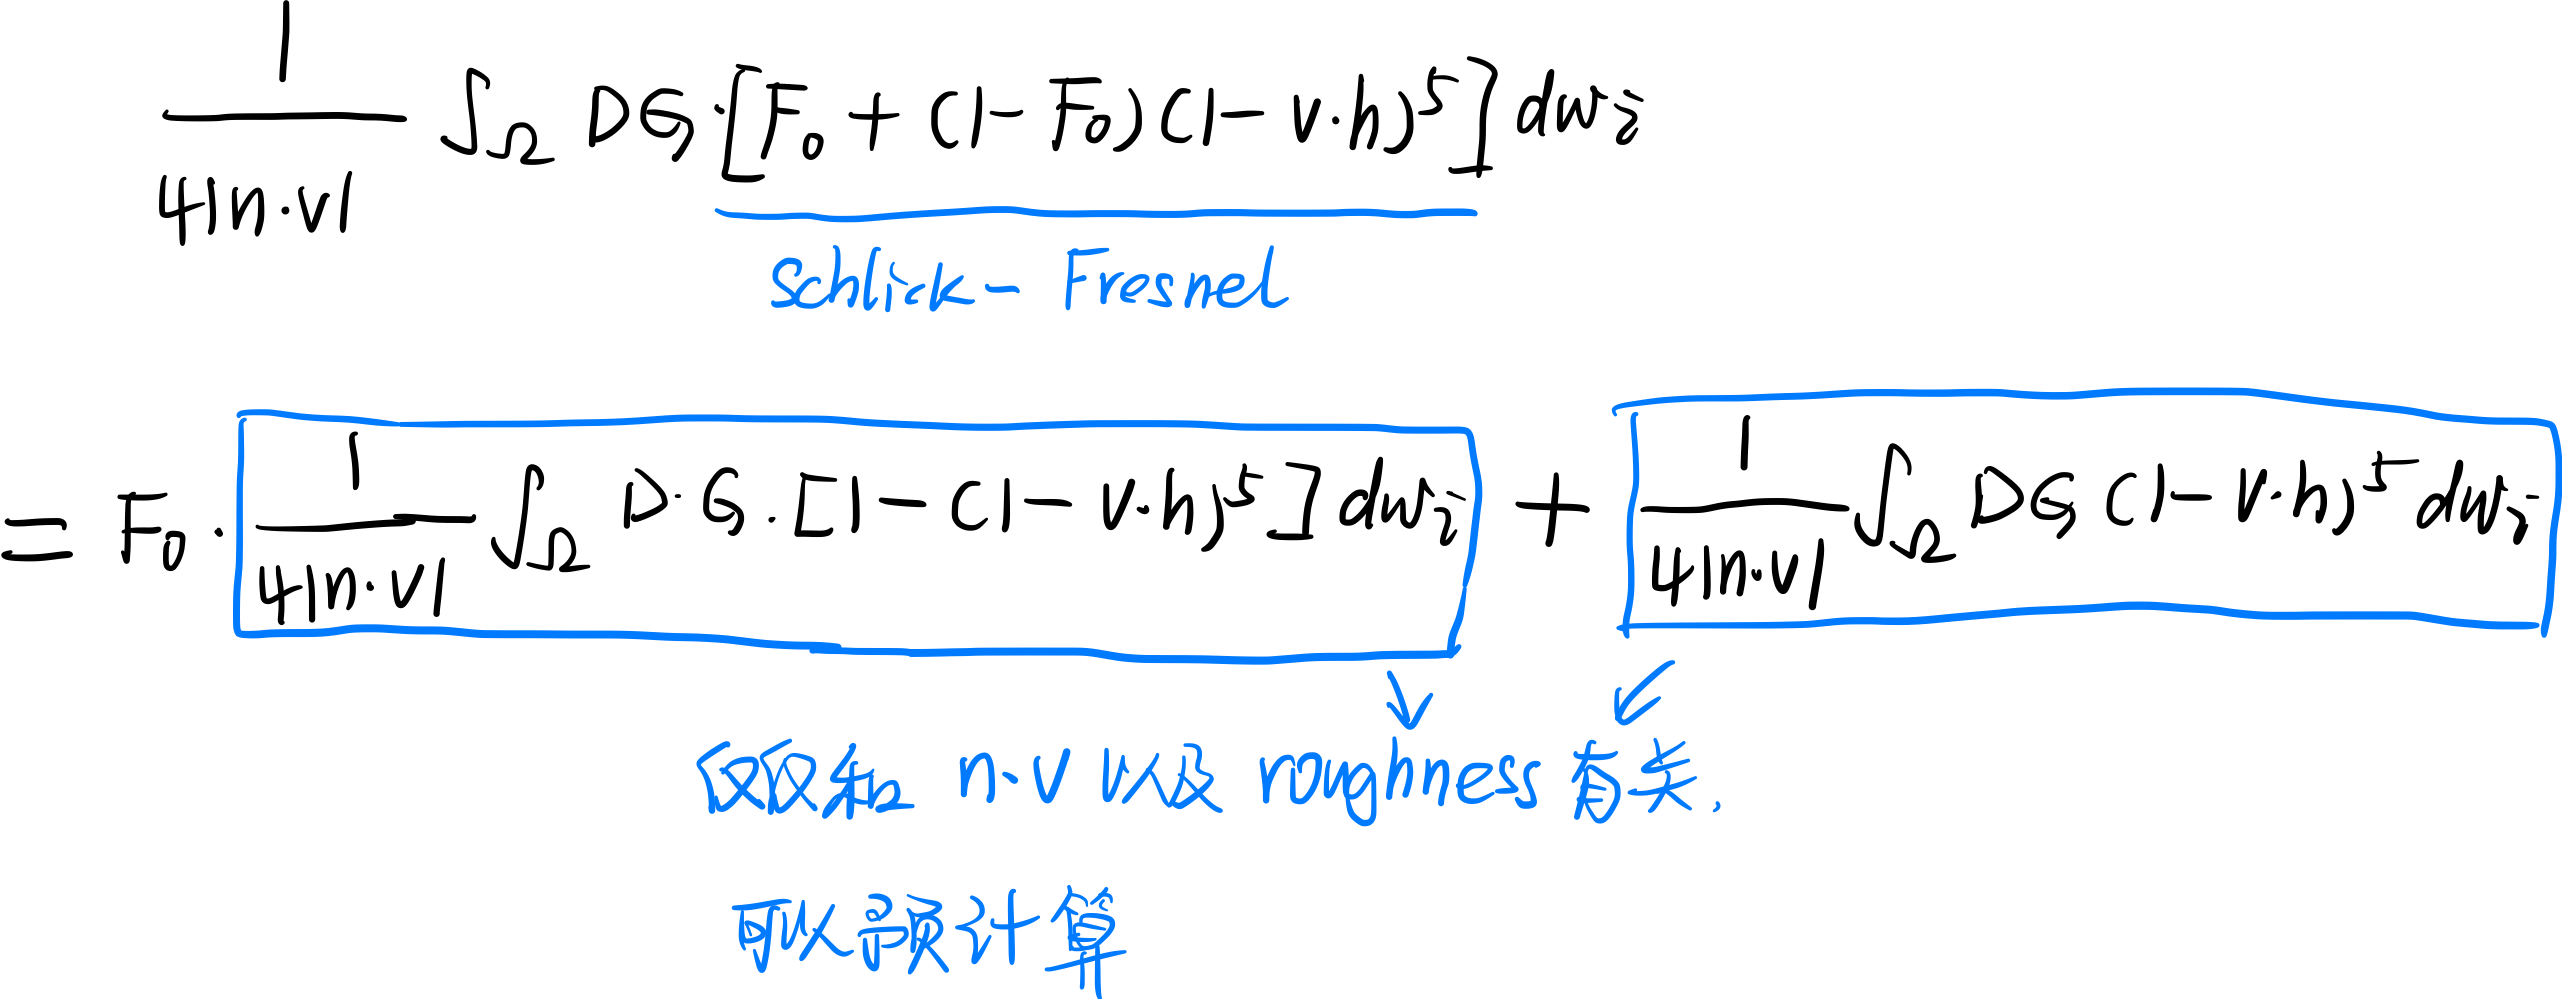 1/(4|n·v|) ∫_Ω DG·[F₀ + (1-F₀)(1-v·h)⁵] dwᵢ
Schlick-Fresnel
= F₀ · 1/(4|n·v|) ∫_Ω D·G·[1-(1-v·h)⁵] dwᵢ + 1/(4|n·v|) ∫_Ω DG(1-v·h)⁵ dwᵢ
仅仅和 n·v 以及 roughness 有关.
可以预计算